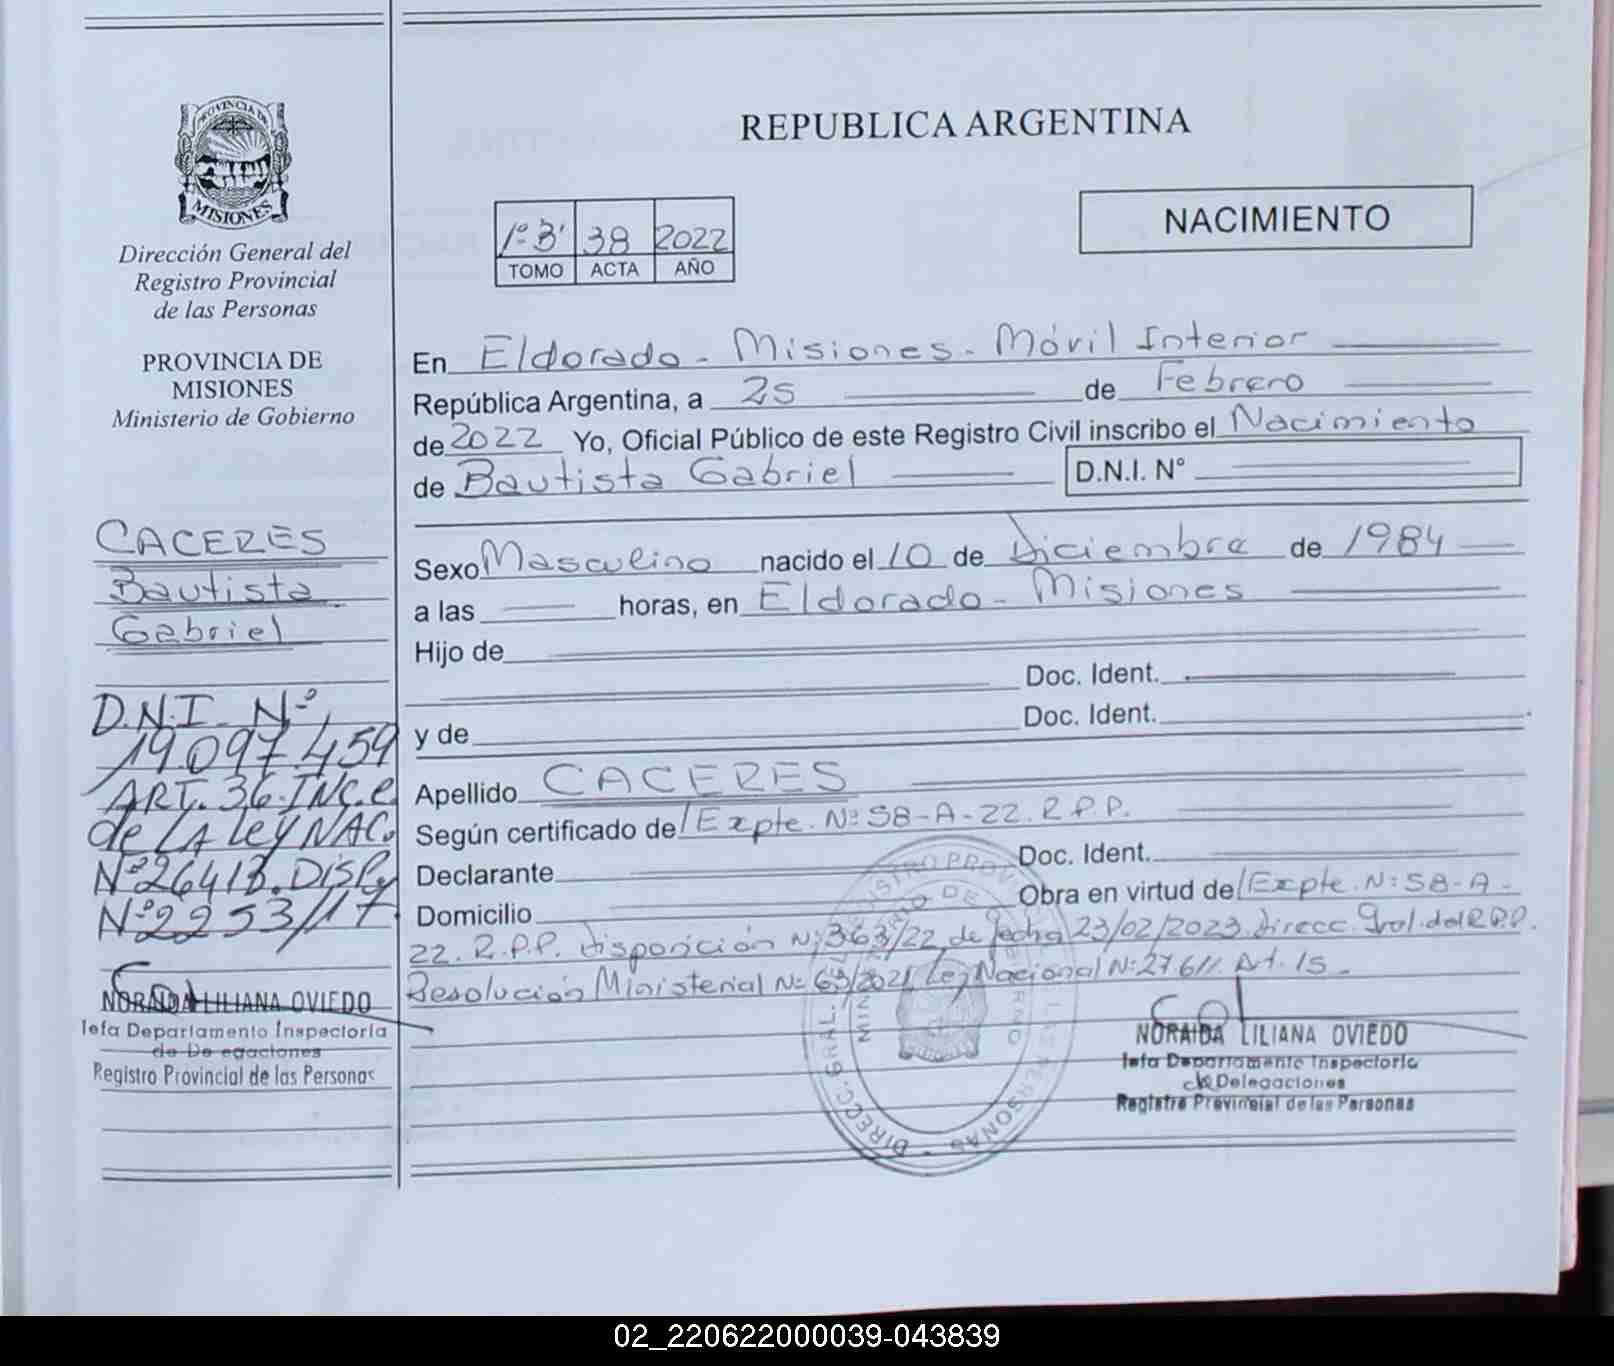 PROVINCIA DE
MISIONES
Dirección General del
Registro Provincial
de las Personas
PROVINCIA DE
MISIONES
Ministerio de Gobierno
CACERES
Bautista
Gabriel
D.N.I. Nº
19.097.459
ART. 36. INC. e
de LA Ley NAC.
Nº 26413. DISP.
Nº 2253/17.
NORAIDA LILIANA OVIEDO
Jefa Departamento Inspectoria
de Delegaciones
Registro Provincial de las Personas
REPUBLICA ARGENTINA
NACIMIENTO
1º B' 38 2022
TOMO ACTA AÑO
En Eldorado - Misiones - Móvil Interior
República Argentina, a 25 de Febrero
de 2022 Yo, Oficial Público de este Registro Civil inscribo el Nacimiento
de Bautista Gabriel D.N.I. N°
Sexo Masculino nacido el 10 de Diciembre de 1984
a las horas, en Eldorado - Misiones
Hijo de
Doc. Ident.
y de Doc. Ident.
Apellido CACERES
Según certificado de Expte. Nº 58-A-22. R.P.P.
Declarante Doc. Ident.
Domicilio Obra en virtud de Expte. Nº 58-A-
22. R.P.P. Disposición Nº 363/22 de fecha 23/02/2023. Direcc. Gral. del R.P.P.
Resolución Ministerial Nº 63/2021 Ley Nacional Nº 27.611 Art. 15.
NORAIDA LILIANA OVIEDO
Jefa Departamento Inspectoria
de Delegaciones
Registro Provincial de las Personas
02_220622000039-043839